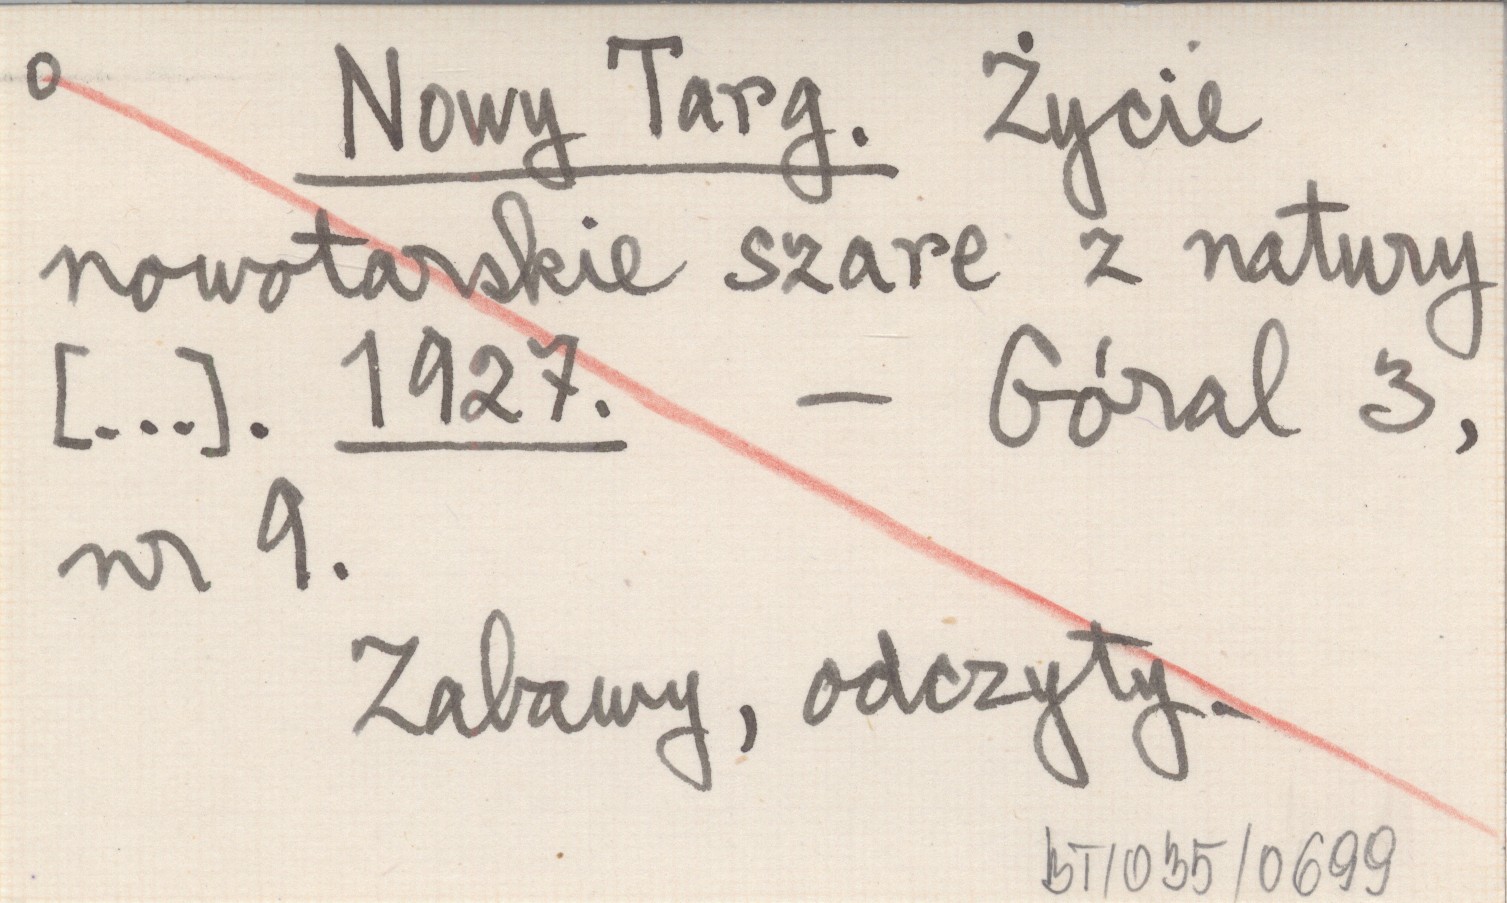 o Nowy Targ. Życie
nowotarskie szare z natury
[...]. 1927. – Góral 3,
nr 9.
Zabawy, odczyty.
BT/035/0699